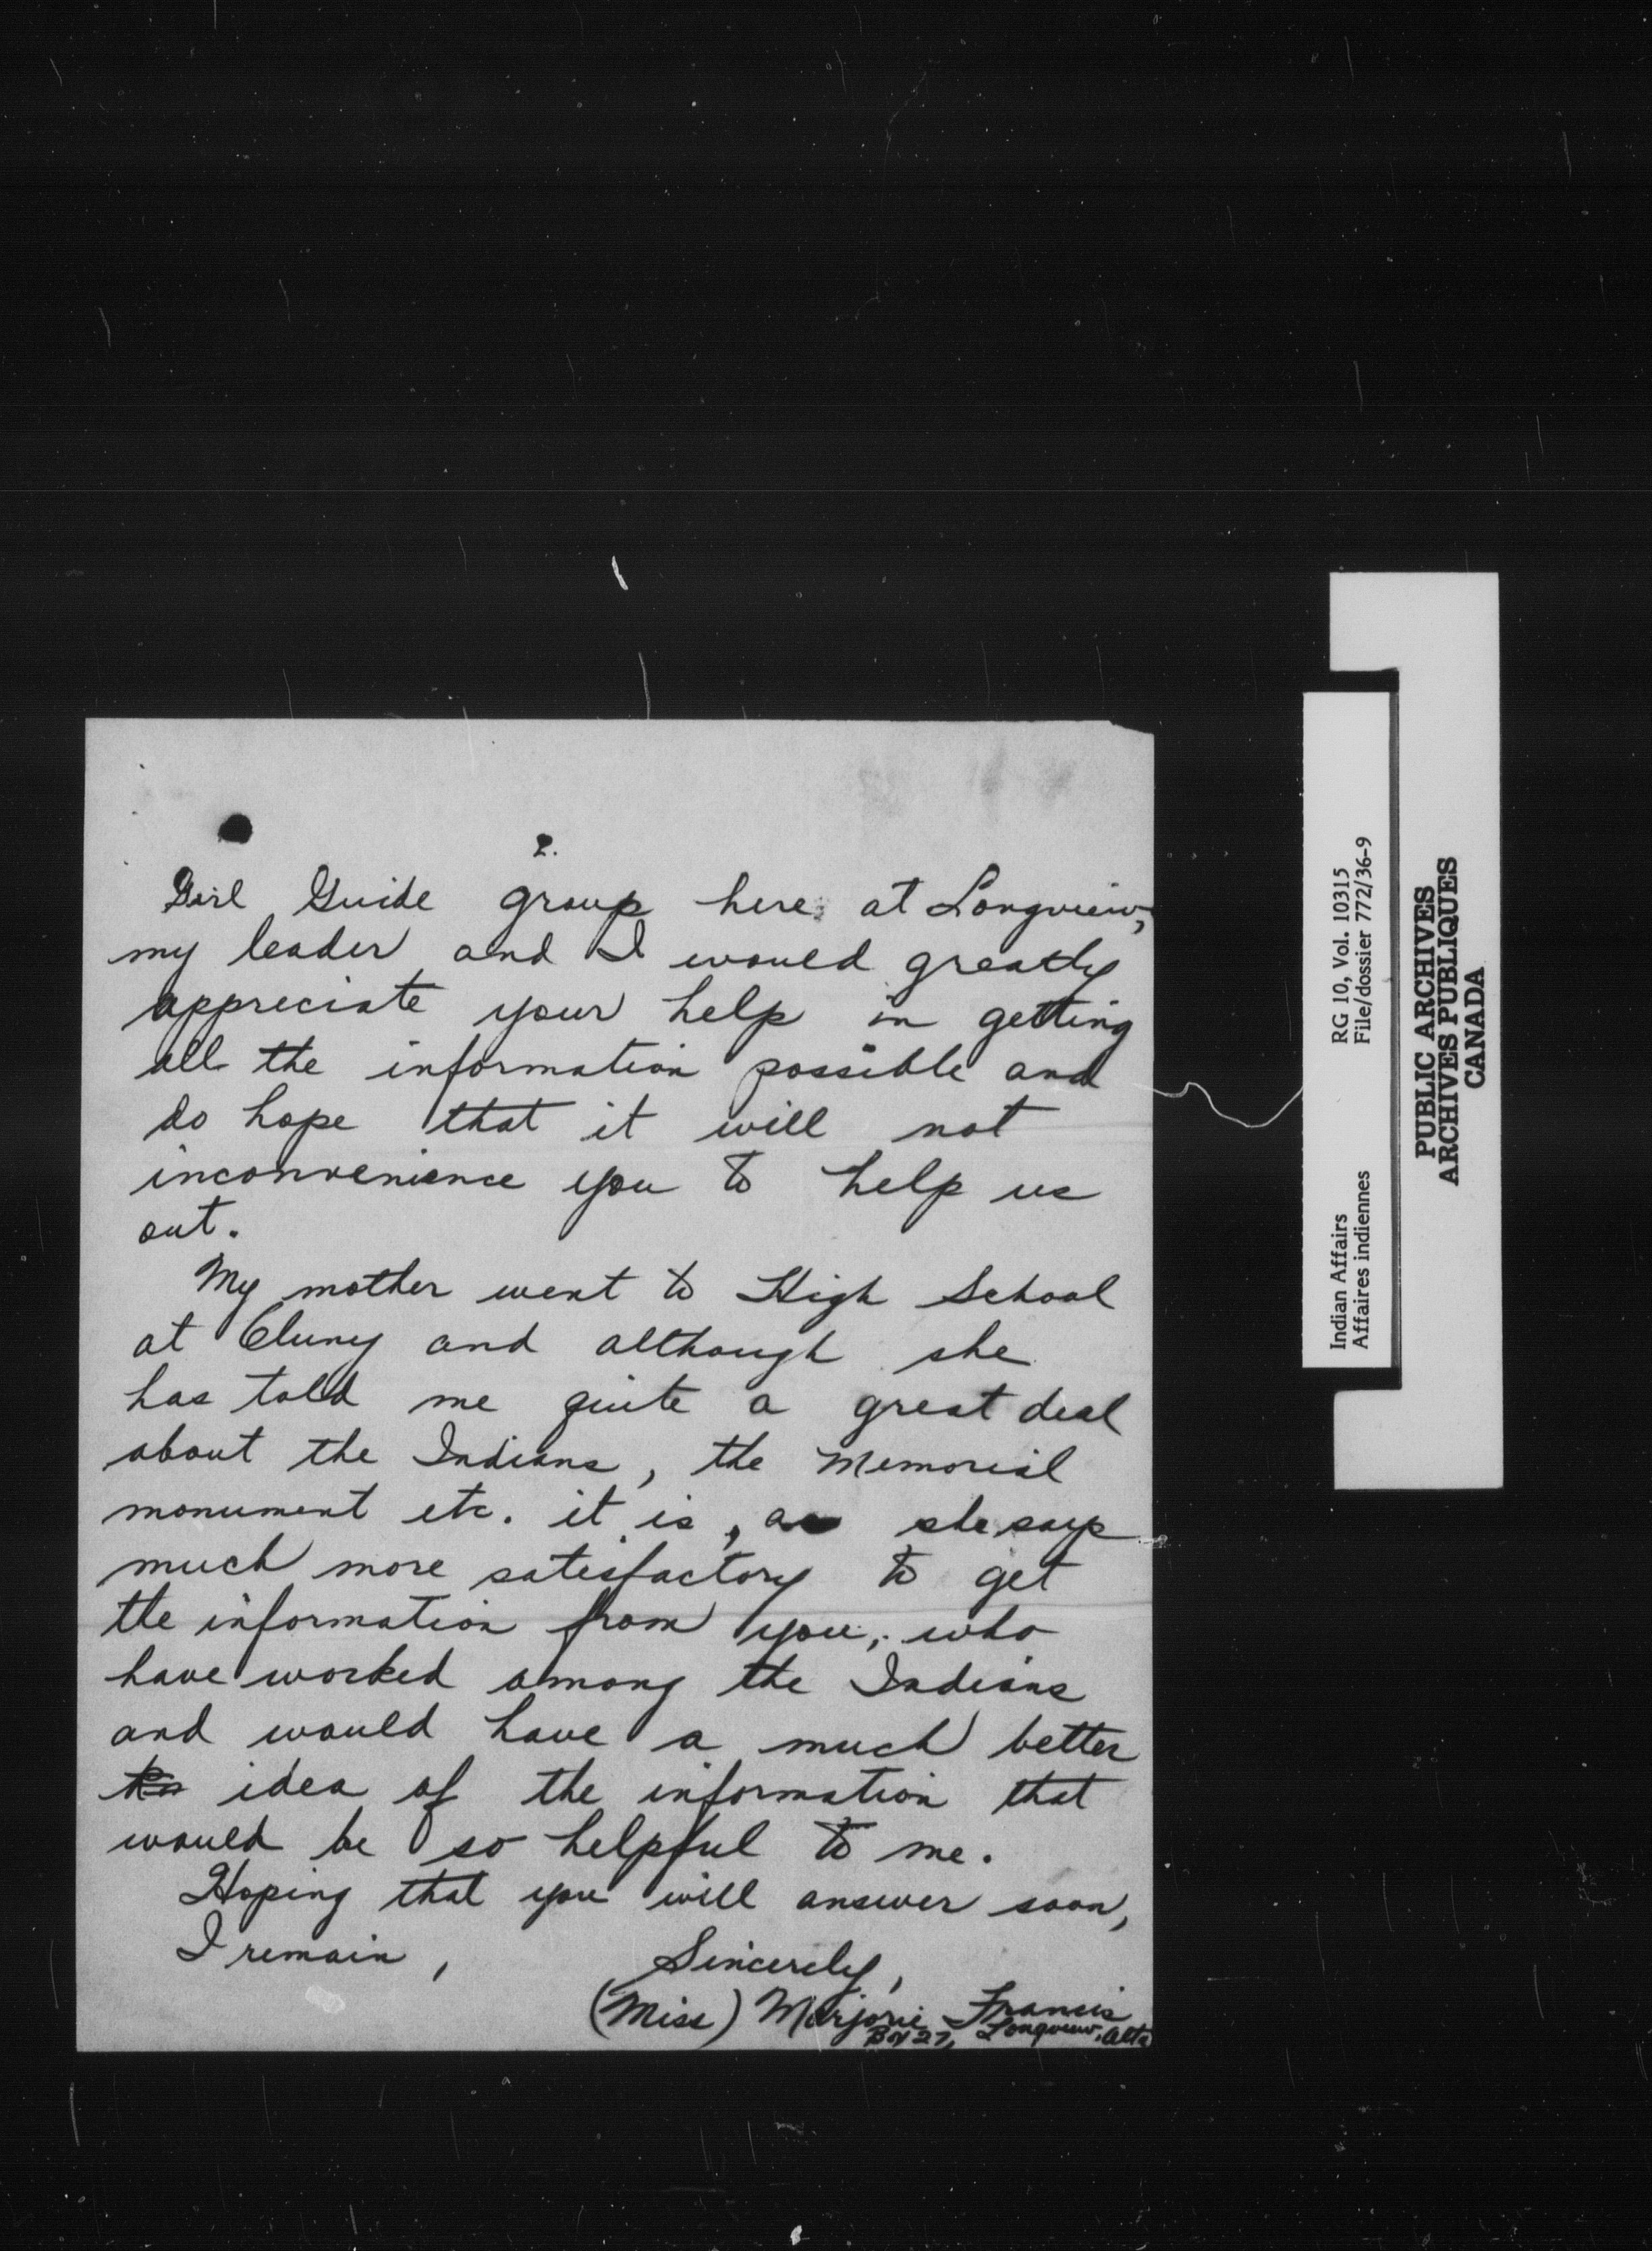 2.
Girl Guide group here at Longview,
my leader and I would greatly
appreciate your help in getting
all the information possible and
do hope that it will not
inconvenience you to help us
out.
My mother went to High School
at Cluny and although she
has told me quite a great deal
about the Indians, the Memorial
monument etc. it is, as she says
much more satisfactory to get
the information from you, who
have worked among the Indians
and would have a much better
idea of the information that
would be so helpful to me.
Hoping that you will answer soon,
I remain,
Sincerely,
(Miss) Marjorie Francis
Box 27, Longview, Alta
Indian Affairs RG 10, Vol. 10315
Affaires indiennes File/dossier 772/36-9
PUBLIC ARCHIVES
ARCHIVES PUBLIQUES
CANADA